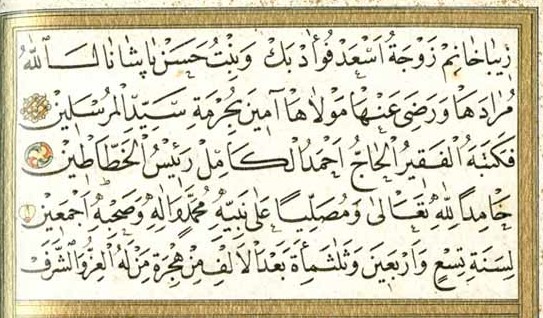 زيبا خانم زوجة اسعد فؤاد بك وبنت حسن پاشا انالها الله
مرادها ورضى عنها مولاها آمين بحرمة سيد المرسلين
فكتبه الفقير الحاج احمد الكامل رئيس الخطاطين
حامدا لله تعالى ومصليا على نبيه محمد واله وصحبه اجمعين
لسنة تسع واربعين وثلثمأة بعد الالف من هجرة من له العز والشرف